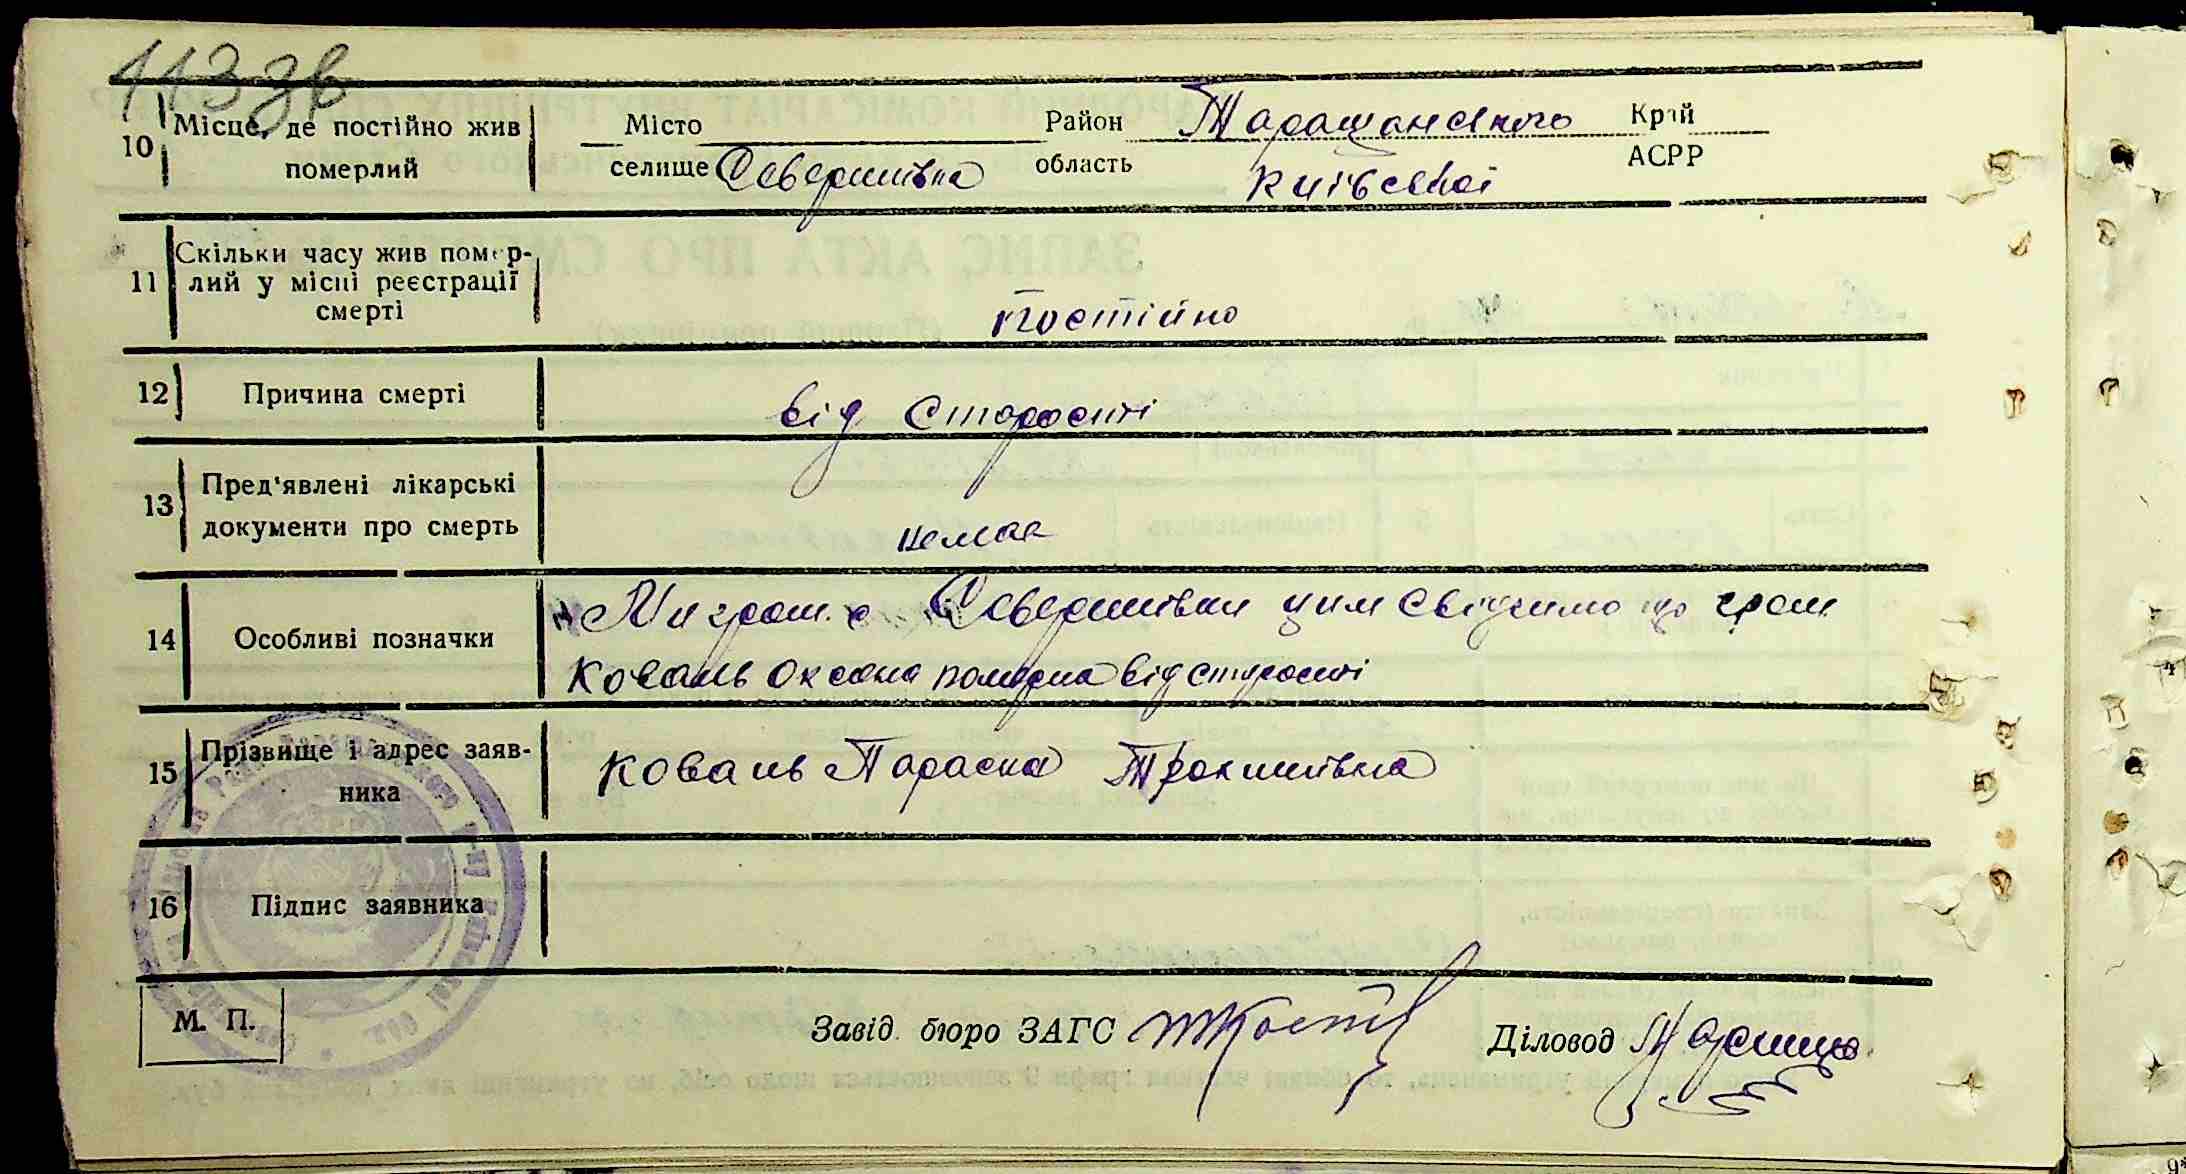 113 зв
10 Місце, де постійно жив померлий
Місто Район Таращанського Край
селище Северинівка область Київської АСРР
11 Скільки часу жив помер-
лий у місці реєстрації
смерті
постійно
12 Причина смерті від старости
13 Пред'явлені лікарські
документи про смерть
немає
14 Особливі позначки
Ми гром. с Северинівки цим свідчимо що гром
Коваль Оксана померла від старости
15 Прізвище і адрес заяв-
ника
Коваль Параска
16 Підпис заявника
М. П.
Завід. бюро ЗАГС Діловод